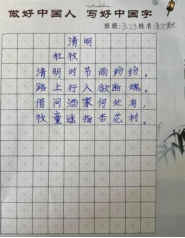 做好中国人 写好中国字
班级:323 姓名:
清明
杜牧
清明时节雨纷纷,
路上行人欲断魂。
借问酒家何处有,
牧童遥指杏花村。